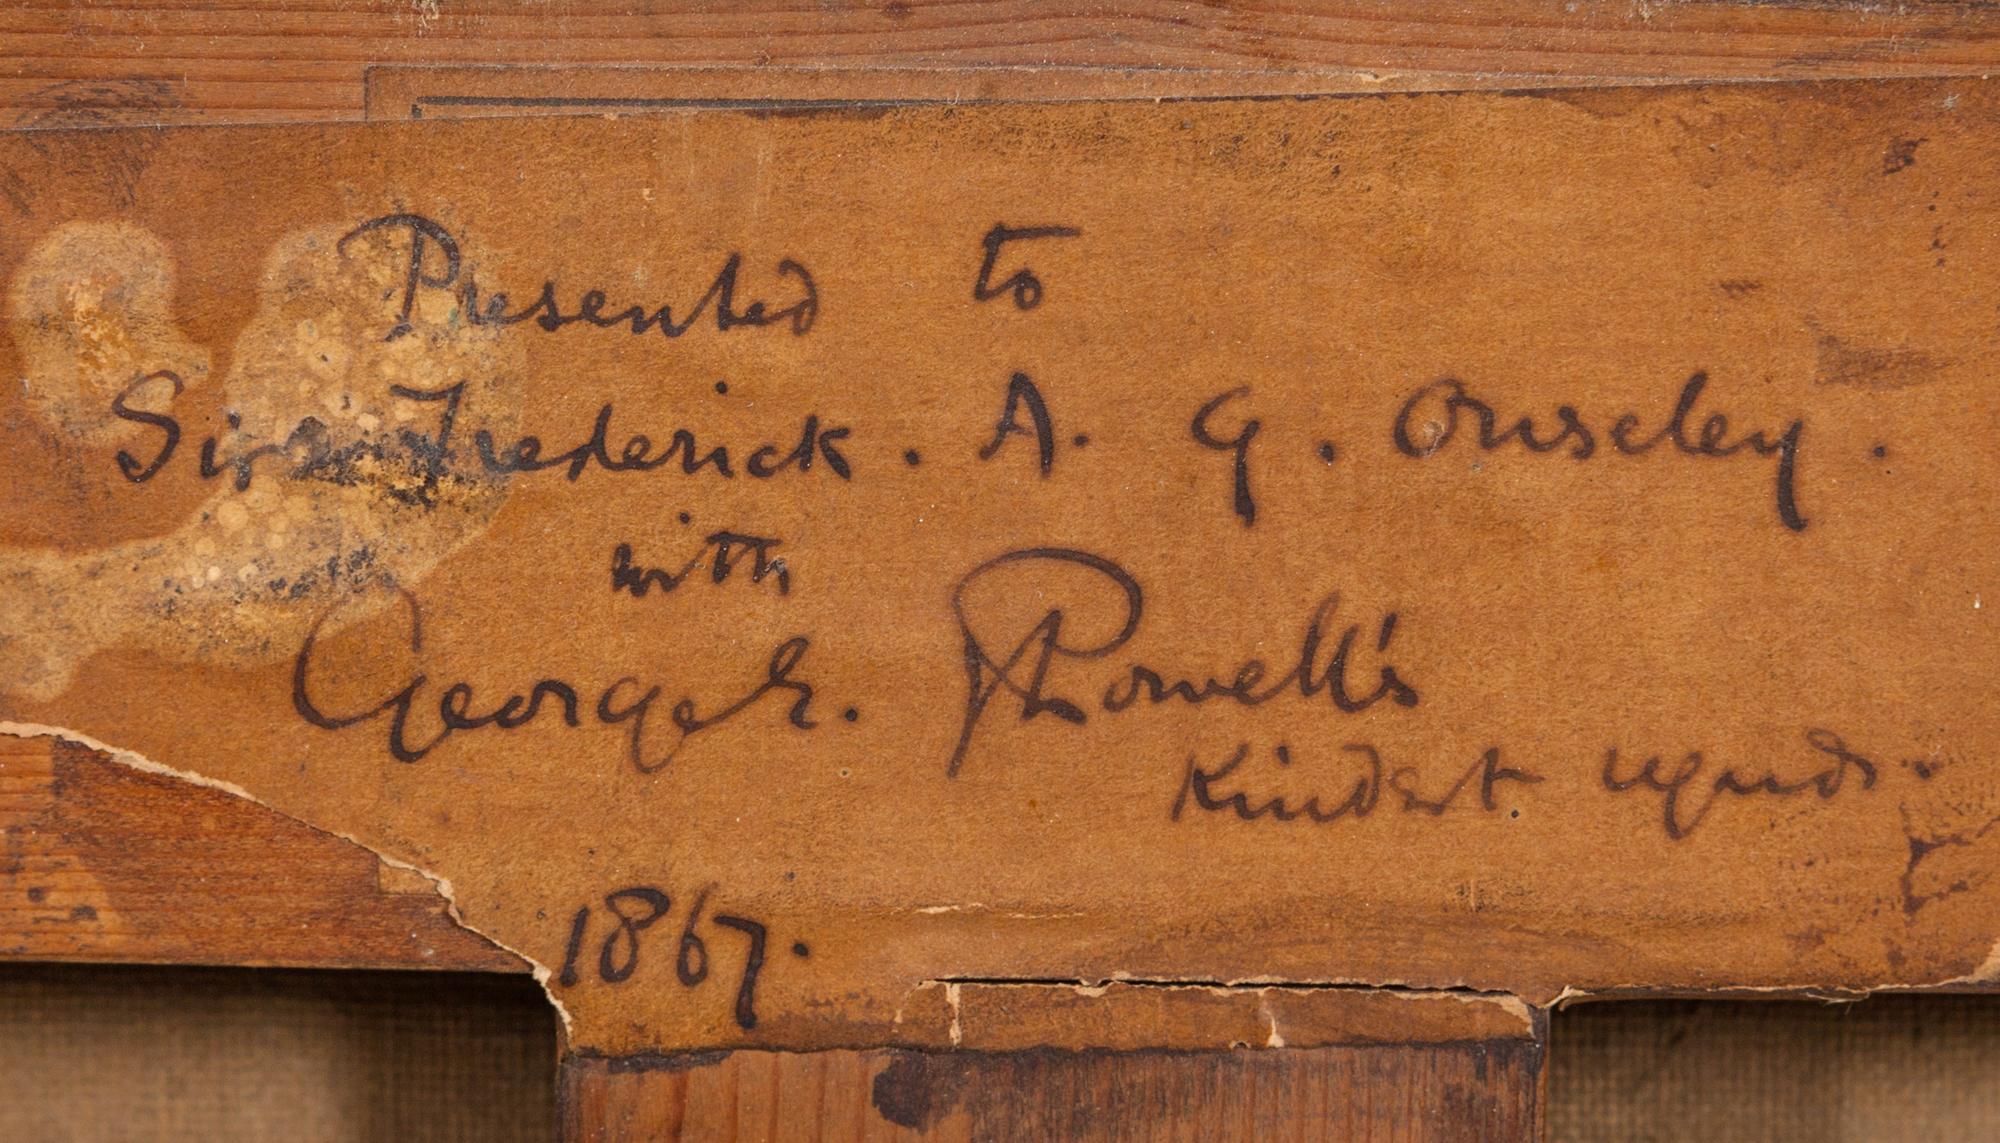 Presented to
Sir Frederick. A. G. Ouseley.
with
George E. Powell's
Kindest regards.
1867.